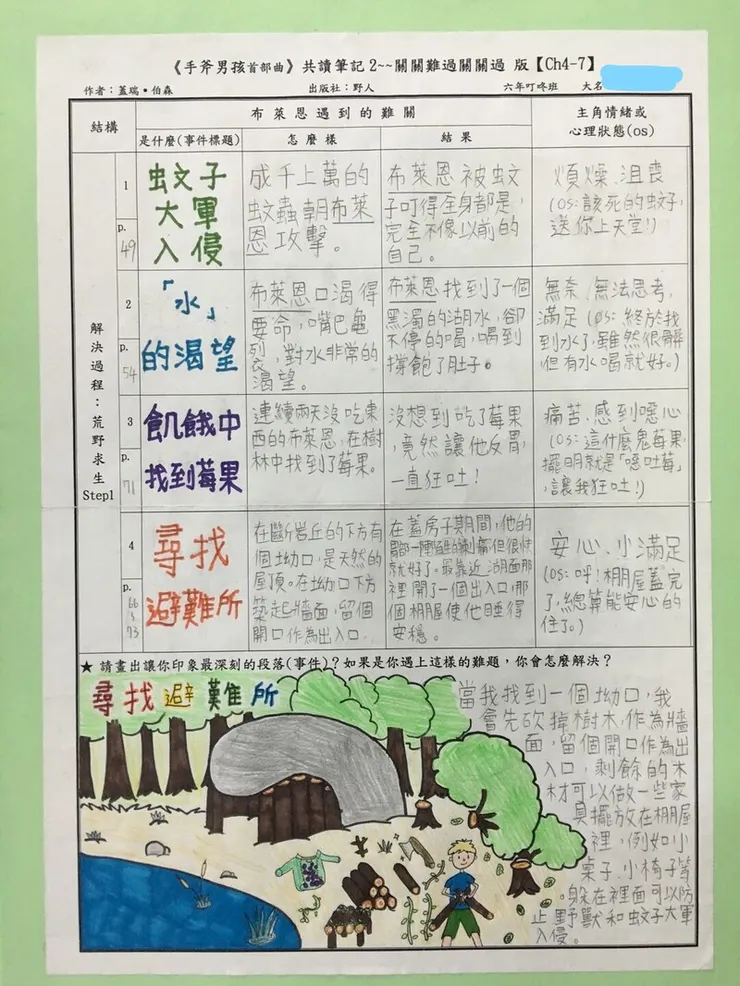 《手斧男孩首部曲》共讀筆記2~~關關難過關關過 版【Ch4-7】
作者：蓋瑞•伯森 出版社：野人 六年叮咚班 大名
結構
布萊恩遇到的難關
主角情緒或
心理狀態(os)
是什麼(事件標題)
怎麼樣
結果
解決過程：荒野求生
Step1
1
p.
49
蚊子
大軍
入侵
成千上萬的
蚊蟲朝布萊
恩攻擊。
布萊恩被蚊
子叮得全身都是，
完全不像以前的
自己。
煩燥、沮喪
(os:該死的蚊子，
送你上天堂!)
2
p.
54
「水」
的渴望
布萊恩口渴得
要命，嘴巴龜
裂，對水非常的
渴望。
布萊恩找到了一個
黑濁的湖水，卻
不停的喝，喝到
撐飽了肚子。
無奈、無法思考、
滿足(os:終於找
到水了，雖然很髒
但有水喝就好。)
3
p.
71
飢餓中
找到莓果
連續兩天沒吃東
西的布萊恩，在樹
林中找到了莓果。
沒想到吃了莓果
，竟然讓他反胃，
一直狂吐！
痛苦、感到噁心
(os:這什麼鬼莓果，
擺明就是「噁吐莓」
，讓我狂吐!)
4
p.
66
73
尋找
避難所
在斷岩丘的下方有
個坳口，是天然的
屋頂。在坳口下方
築起牆面，留個
開口作為出入口。
在蓋房子期間，他的
就好了。最靠近湖面那
裡開了一個出入口，那
個棚屋使他睡得
安穩。
安心、小滿足
(os:呼!棚屋蓋完
了，總算能安心的
住了。)
★請畫出讓你印象最深刻的段落(事件)？如果是你遇上這樣的難題，你會怎麼解決？
尋找避難所
當我找到一個坳口，我
會先砍掉樹木，作為牆
面，留個開口作為出
入口，剩餘的木
材可以做一些家
具擺放在棚屋
裡，例如小
桌子、小椅子等
。躲在裡面可以防
止野獸和蚊子大軍
入侵。